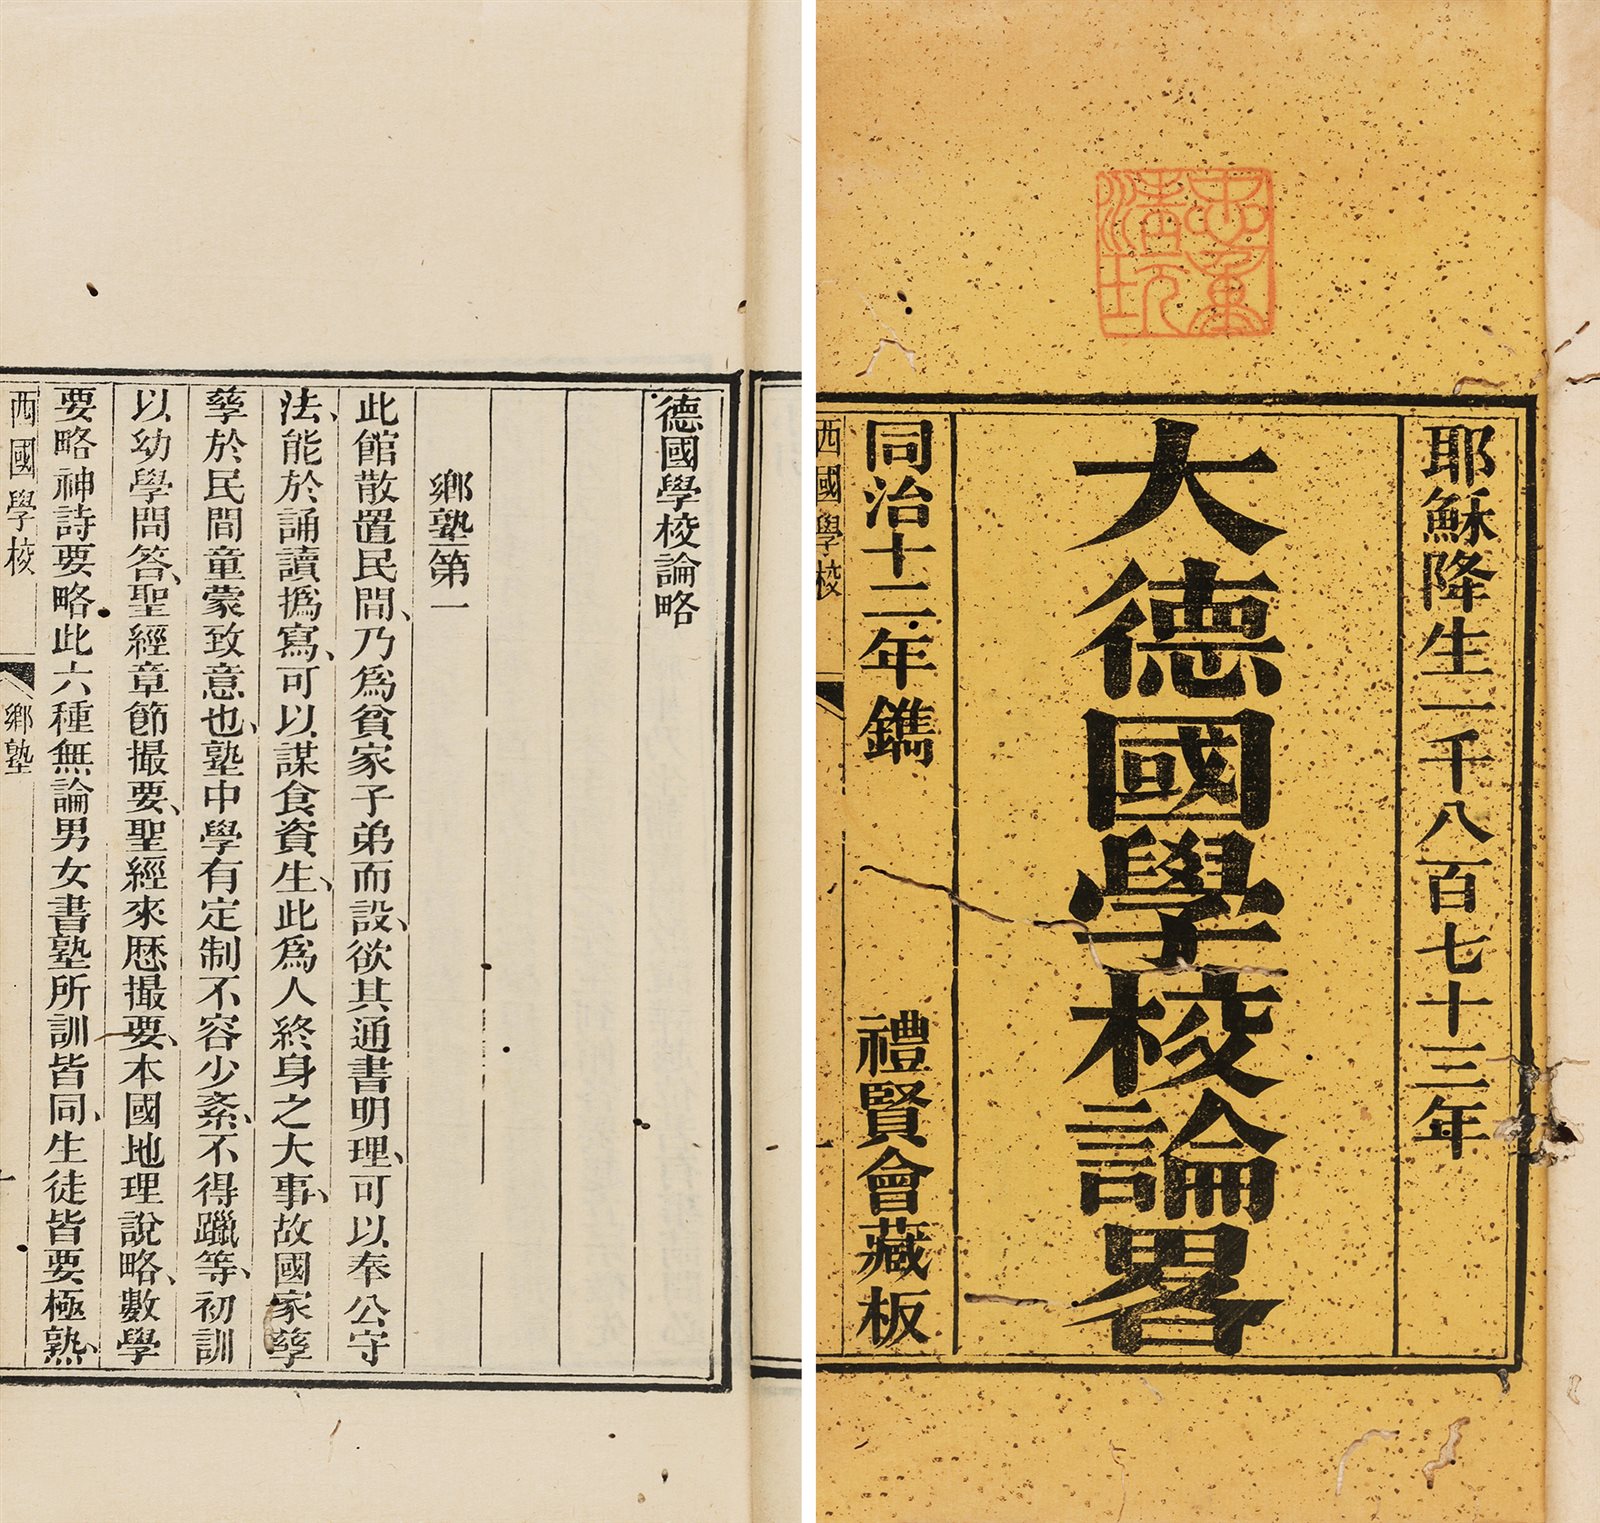 耶穌降生一千八百七十三年
大德國學校論畧
同治十二年鐫
禮賢會藏板
西國學校
德國學校論略
鄉塾第一
此館散置民間、乃爲貧家子弟而設、欲其通書明理、可以奉公守
法、能於誦讀撝寫、可以謀食資生、此爲人終身之大事、故國家孳
孳於民間童蒙致意也、塾中學有定制不容少紊、不得躐等、初訓
以幼學問答、聖經章節撮要、聖經來歷撮要、本國地理說略、數學
要略神詩要略此六種無論男女書塾所訓皆同、生徒皆要極熟、
西國學校
鄉塾